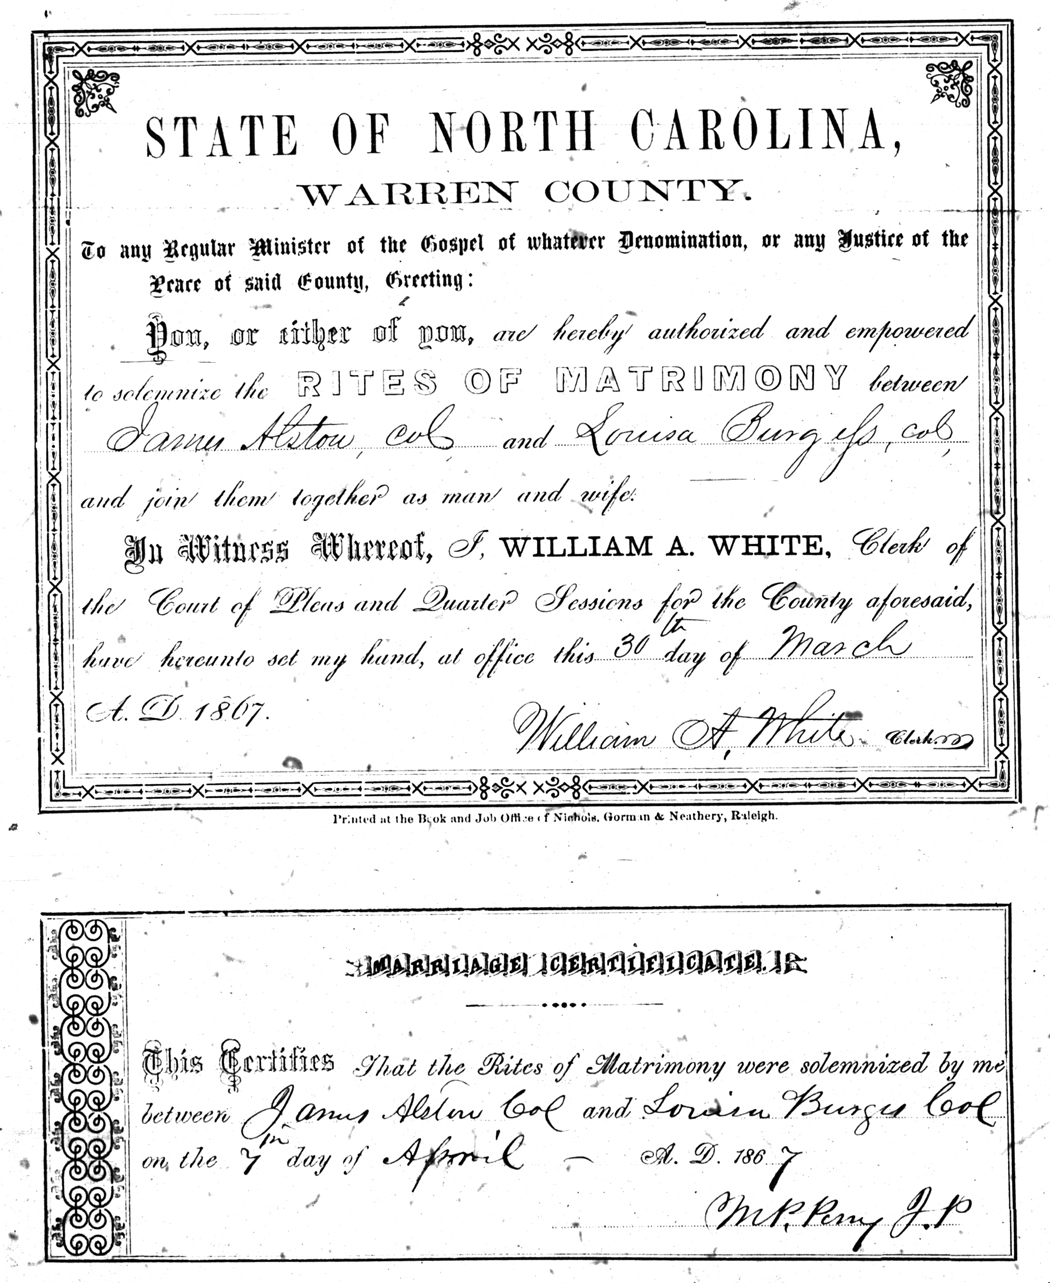 STATE OF NORTH CAROLINA,
WARREN COUNTY.
To any Regular Minister of the Gospel of whatever Denomination, or any Justice of the
Peace of said County, Greeting:
You, or either of you, are hereby authorized and empowered
to solemnize the RITES OF MATRIMONY between
James Alston, col and Louisa Burgess, col,
and join them together as man and wife.
In Witness Whereof, I, WILLIAM A. WHITE, Clerk of
the Court of Pleas and Quarter Sessions for the County aforesaid,
have hereunto set my hand, at office this 30th day of March
A. D. 1867.
William A. White Clerk.
Printed at the Book and Job Office of Nichols, Gorman & Neathery, Raleigh.
MARRIAGE CERTIFICATE.
This Certifies That the Rites of Matrimony were solemnized by me
between James Alston Col and Louisa Burges Col
on the 7th day of April — A. D. 1867
M P. Perry J. P